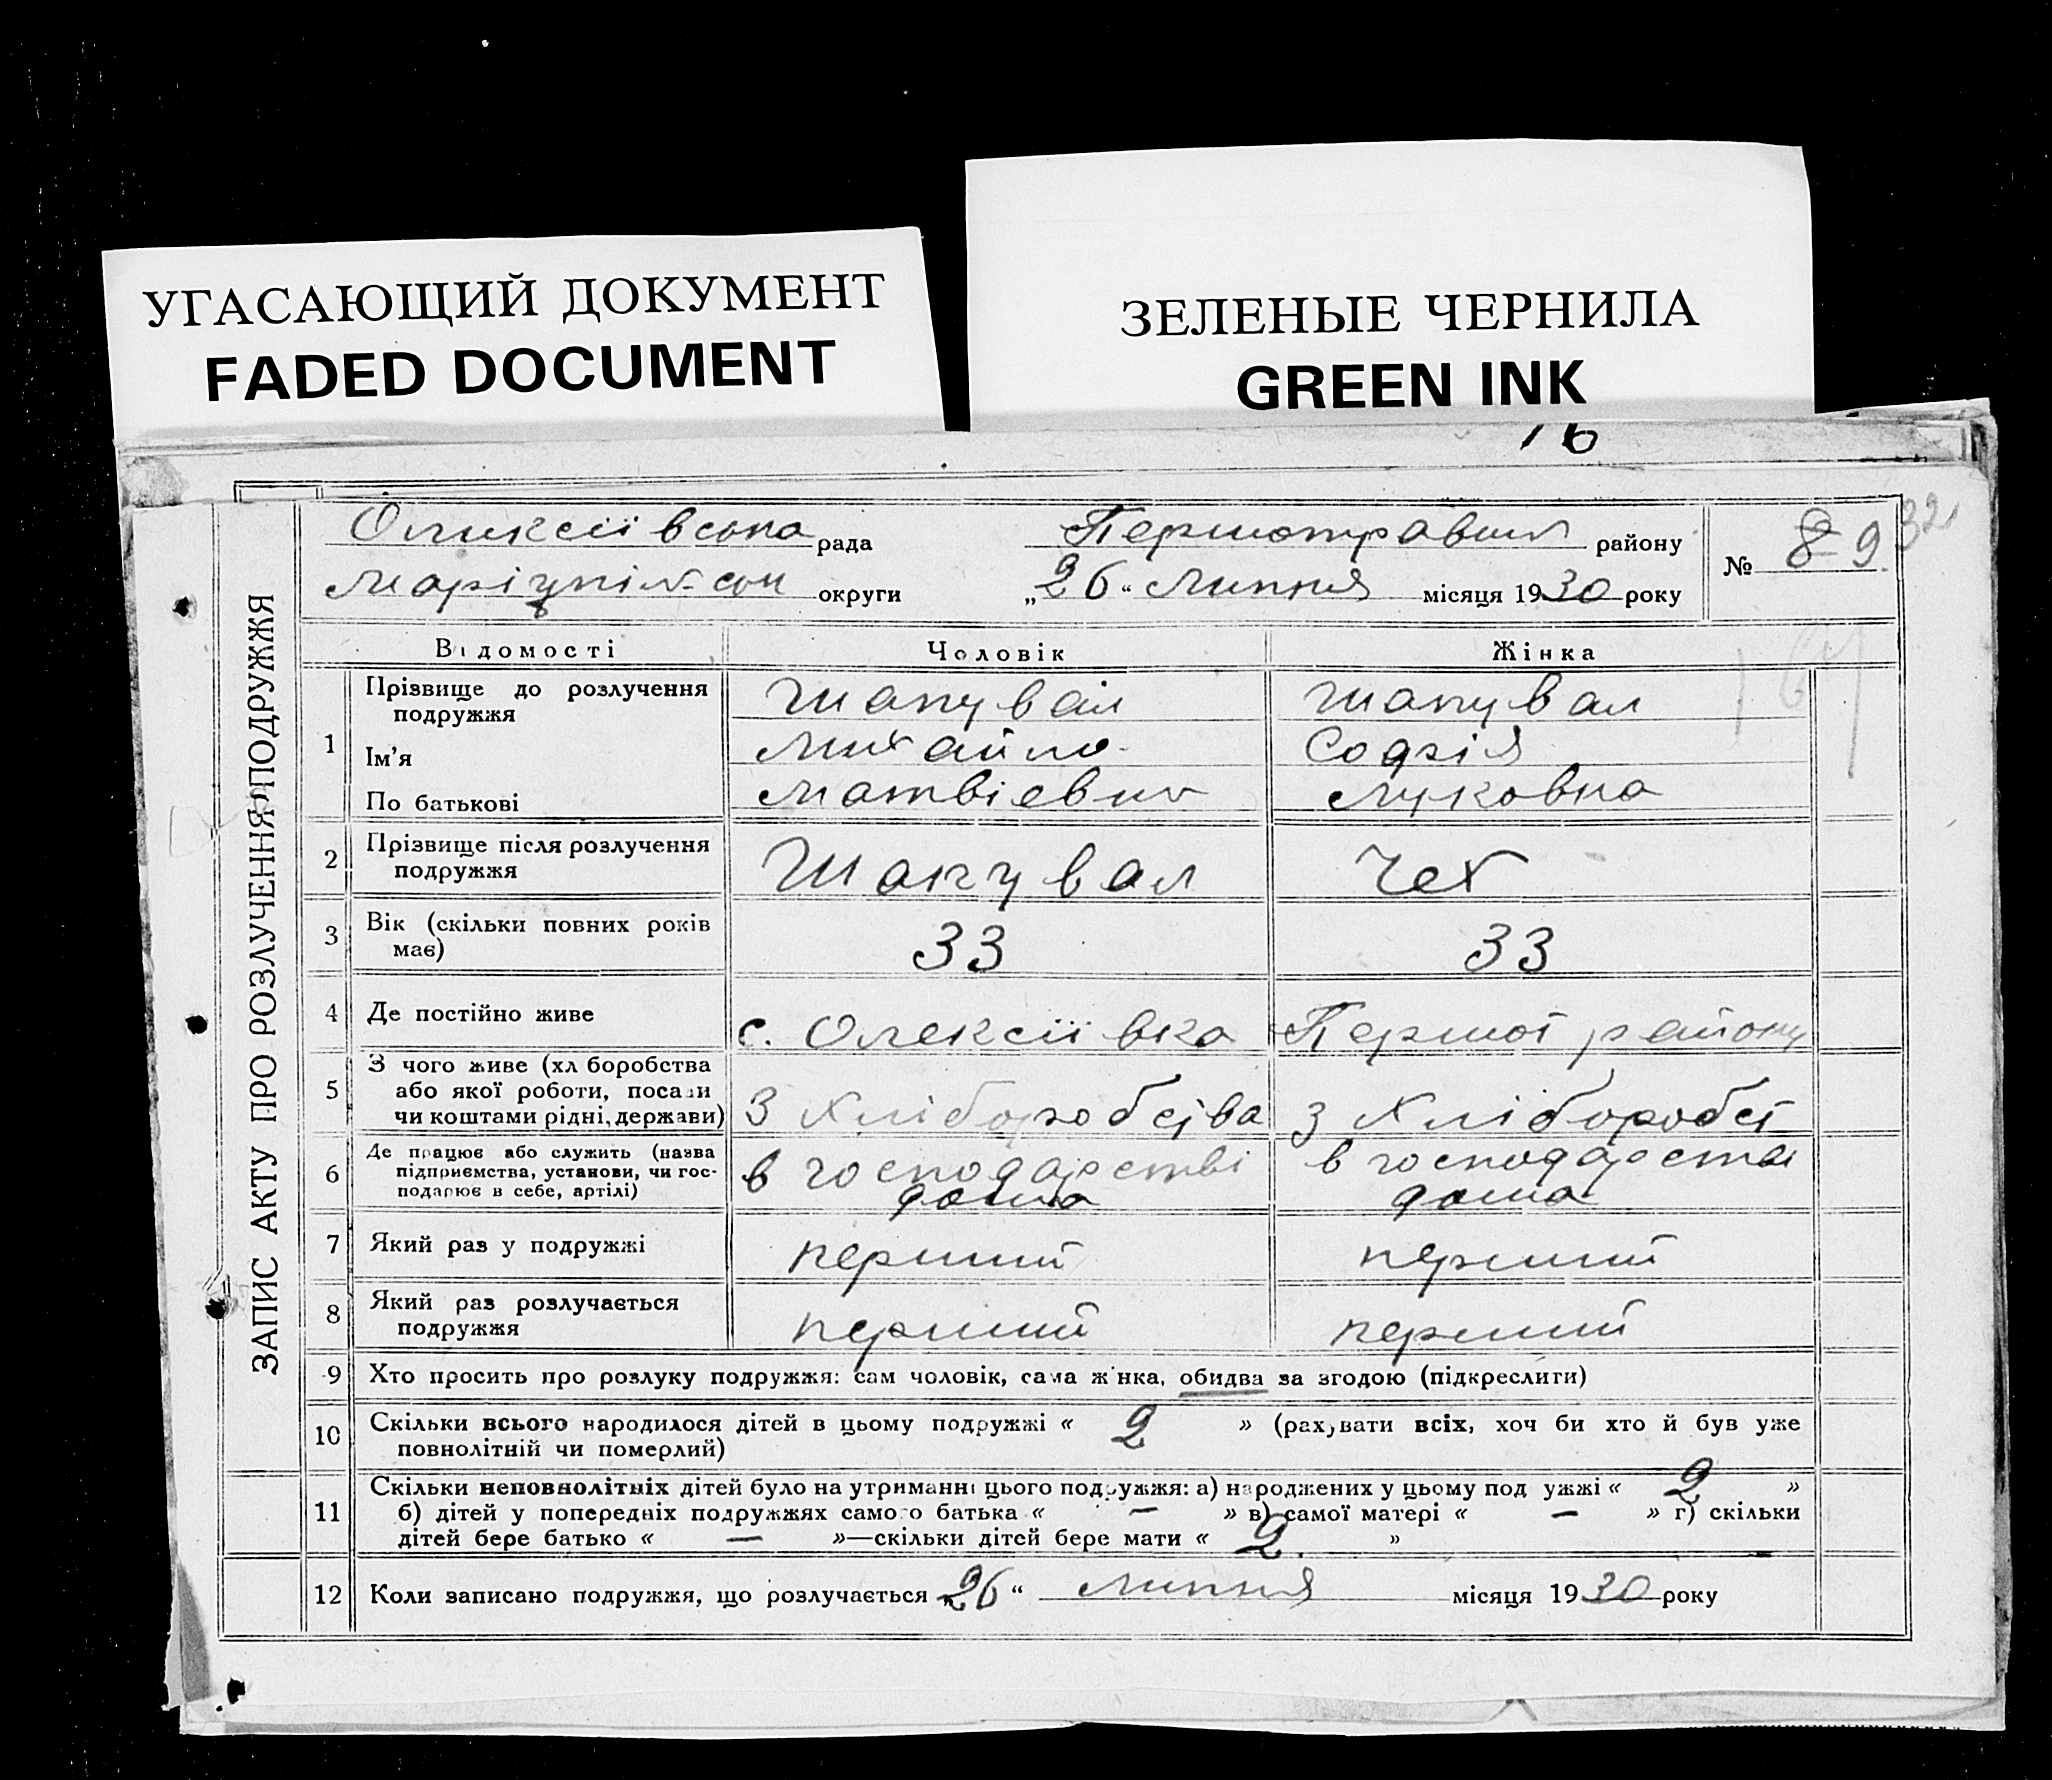 УГАСАЮЩИЙ ДОКУМЕНТ
FADED DOCUMENT
ЗЕЛЕНЫЕ ЧЕРНИЛА
GREEN INK
16
ЗАПИС АКТУ ПРО РОЗЛУЧЕННЯ ПОДРУЖЖЯ
Олексіївська рада Першотравня району № 8 9 32
Маріупільськ округи „26“ Липня місяця 1930 року
Відомості Чоловік Жінка
1 Прізвище до розлучення подружжя Шапувал Шапувал
Ім'я Михайло Софія
По батькові Матвієвич Луковна
2 Прізвище після розлучення подружжя Шапувал Чех
3 Вік (скільки повних років має) 33 33
4 Де постійно живе с. Олексіївка Першот району
5 З чого живе (хл боробства або якої роботи, посади чи коштами рідні, держави) З Хліборобства З Хліборобст
6 Де працює або служить (назва підприємства, установи, чи господарює в себе, артілі) в господарстві дома в господарстві дома
7 Який раз у подружжі перший перший
8 Який раз розлучається подружжя перший перший
9 Хто просить про розлуку подружжя: сам чоловік, сама жінка, обидва за згодою (підкреслити)
10 Скільки всього народилося дітей в цьому подружжі « 2 » (рахувати всіх, хоч би хто й був уже
повнолітній чи померлий)
11 Скільки неповнолітніх дітей було на утриманні цього подружжя: а) народжених у цьому подружжі « 2 »
б) дітей у попередніх подружжях самого батька « — » в) самої матері « — » г) скільки
дітей бере батько « — »—скільки дітей бере мати « 2. »
12 Коли записано подружжя, що розлучається „26“ Липня місяця 1930 року